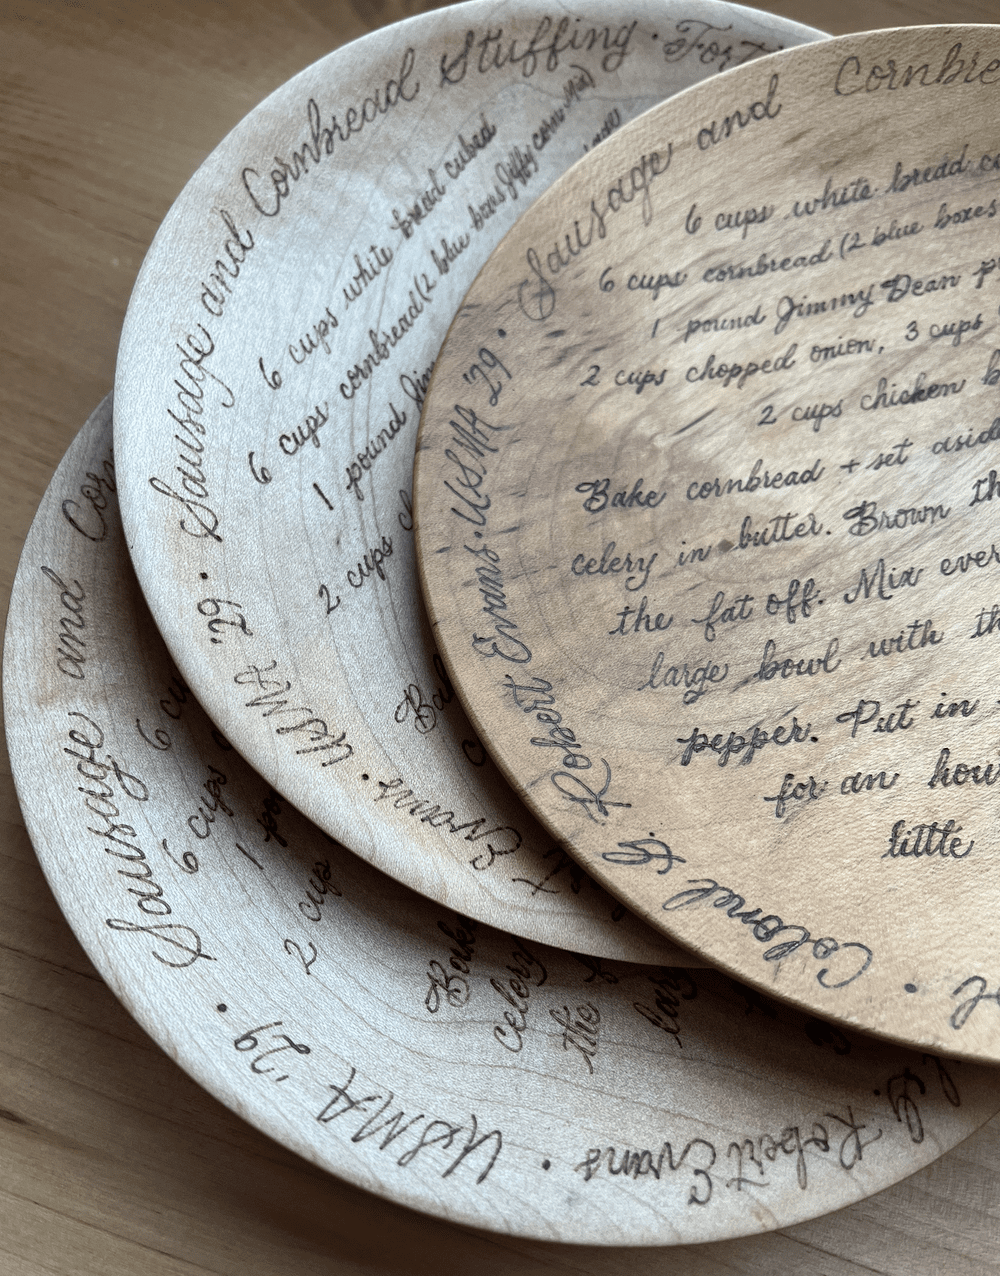 Sausage and Cornbread Stuffing · Fort
6 cups white bread cubed
6 cups cornbread (2 blue boxes Jiffy corn Mix)
1 pound Jim
2 cups
Ba
c
Evans · USMA '29 ·
Sausage and Cornbre
6 cups white bread c
6 cups cornbread (2 blue boxes
1 pound Jimmy Dean p
2 cups chopped onion, 3 cups
2 cups chicken b
Bake cornbread + set asid
celery in butter. Brown th
the fat off. Mix ever
large bowl with th
pepper. Put in
for an hou
little
Colonel G. Robert Evans · USMA '29 ·
Sausage and Cor
6 cu
6 cups
1 po
2 cup
Bake
celery
the f
larg
G. Robert Evans · USMA '29 ·